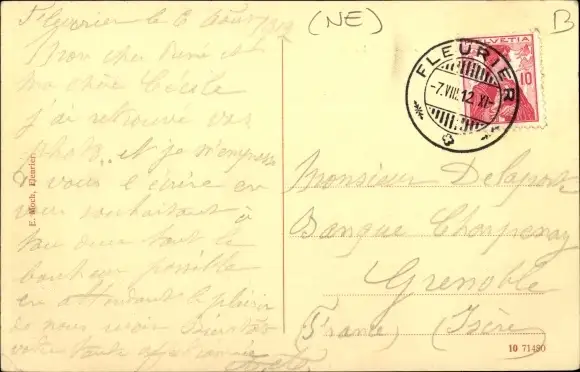 Fleurier le 6 Août 1912
Mon cher René et
ma chère Cécile
j'ai retrouvé vos
photos et je m'empresse
à vous l'écrire en
vous souhaitant à
tou deux tout le
bonheur possible
en attendant le plaisir
de nous voir bientôt
votre tante
(NE)
B
HELVETIA
10
FLEURIER
-7.VIII.12 XI-
Monsieur Delaporte
Banque Charpenay
Grenoble
(France) (Isère)
E. Moch, Fleurier.
10 71480